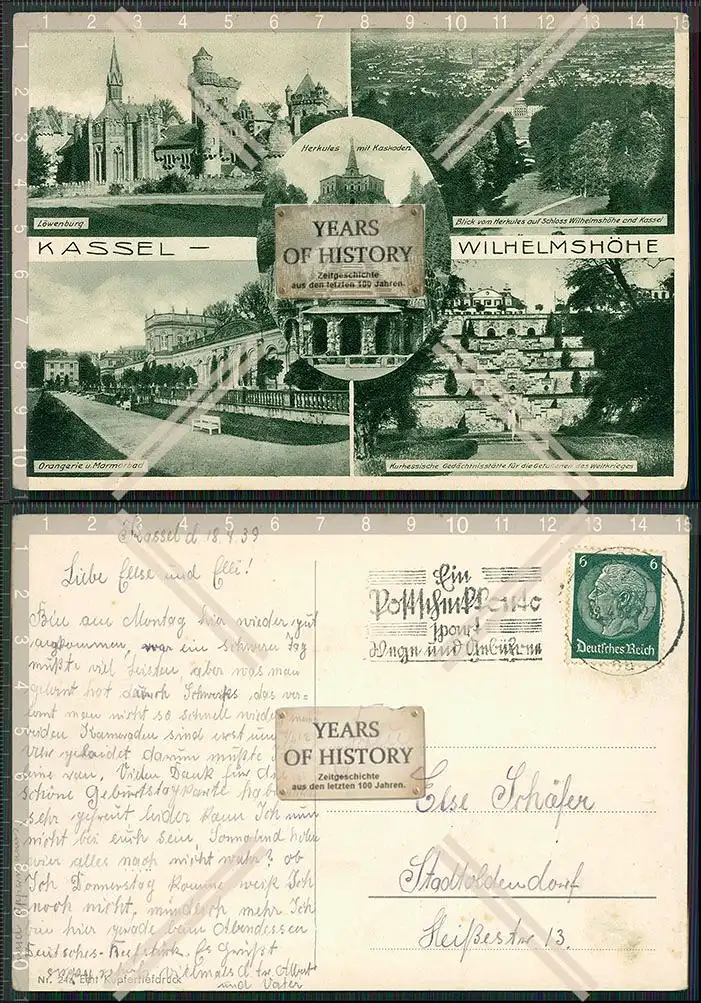 1 2 3 4 5 6 7 8 9 10 11 12 13 14 15
Herkules mit Kaskaden
Löwenburg
Blick vom Herkules auf Schloss Wilhelmshöhe und Kassel
KASSEL — WILHELMSHÖHE
YEARS
OF HISTORY
Zeitgeschichte
aus den letzten 100 Jahren.
Orangerie u. Marmorbad
Kurhessische Gedächtnisstätte für die Gefallenen des Weltkrieges
1 2 3 4 5 6 7 8 9 10 11 12 13 14 15
Kassel d 18.4.39
Liebe Else und Elli!
Bin am Montag hier wieder gut
angkommen, war ein schwerer Tag
müßte viel leisten, aber was man
gelernt hat durch Schweiß das ver-
lernt man nicht so schnell wieder
beiden Kameraden sind erst um
Uhr darum müßte
eine ran. Vielen Dank für die
schöne Geburtstagkarte habe
sehr gefreut leider kann Ich nun
nicht bei euch sein, Sonnabend holen
wier alles nach nicht wahr? ob
Ich Donnerstag komme weiß Ich
noch nicht, mündlich mehr Ich
bin hier gerade beim Abendessen
Deutsches Es Grüßt
vielmals
und Vater
Nr. 24 Echt Kupfertiefdruck
Ein
Postscheckkonto
spart
Wege und Gebühren
6 6
Deutsches Reich
YEARS
OF HISTORY
Zeitgeschichte
aus den letzten 100 Jahren.
Else Schäfer
Stadtoldendorf
13.